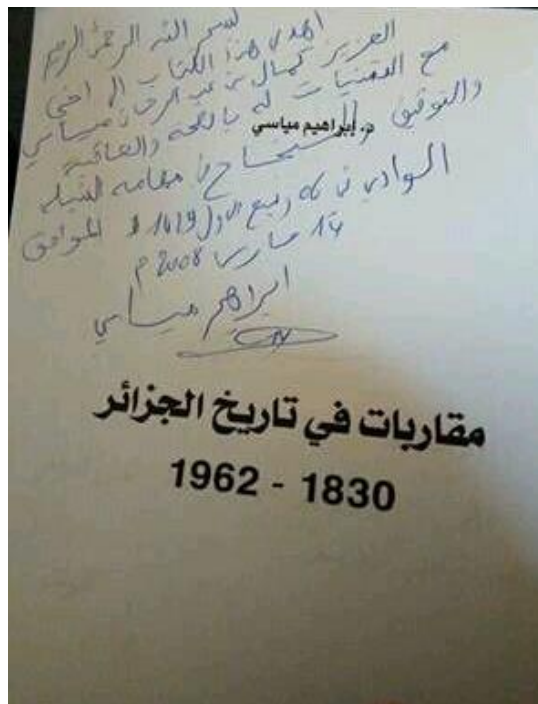 بسم الله الرحمن الرحيم
اهدي هذا الكتاب الى اخي
العزيز كمال بن عبد الرحمان مياسي
مع التمنيات له بالصحة والعافية
د. إبراهيم مياسي
والتوفيق والنجاح في مهامه النبيلة
الوادي في 06 ربيع الاول 1429 هـ الموافق
14 مارس 2008 م
ابراهيم مياسي
مقاربات في تاريخ الجزائر
1830 - 1962